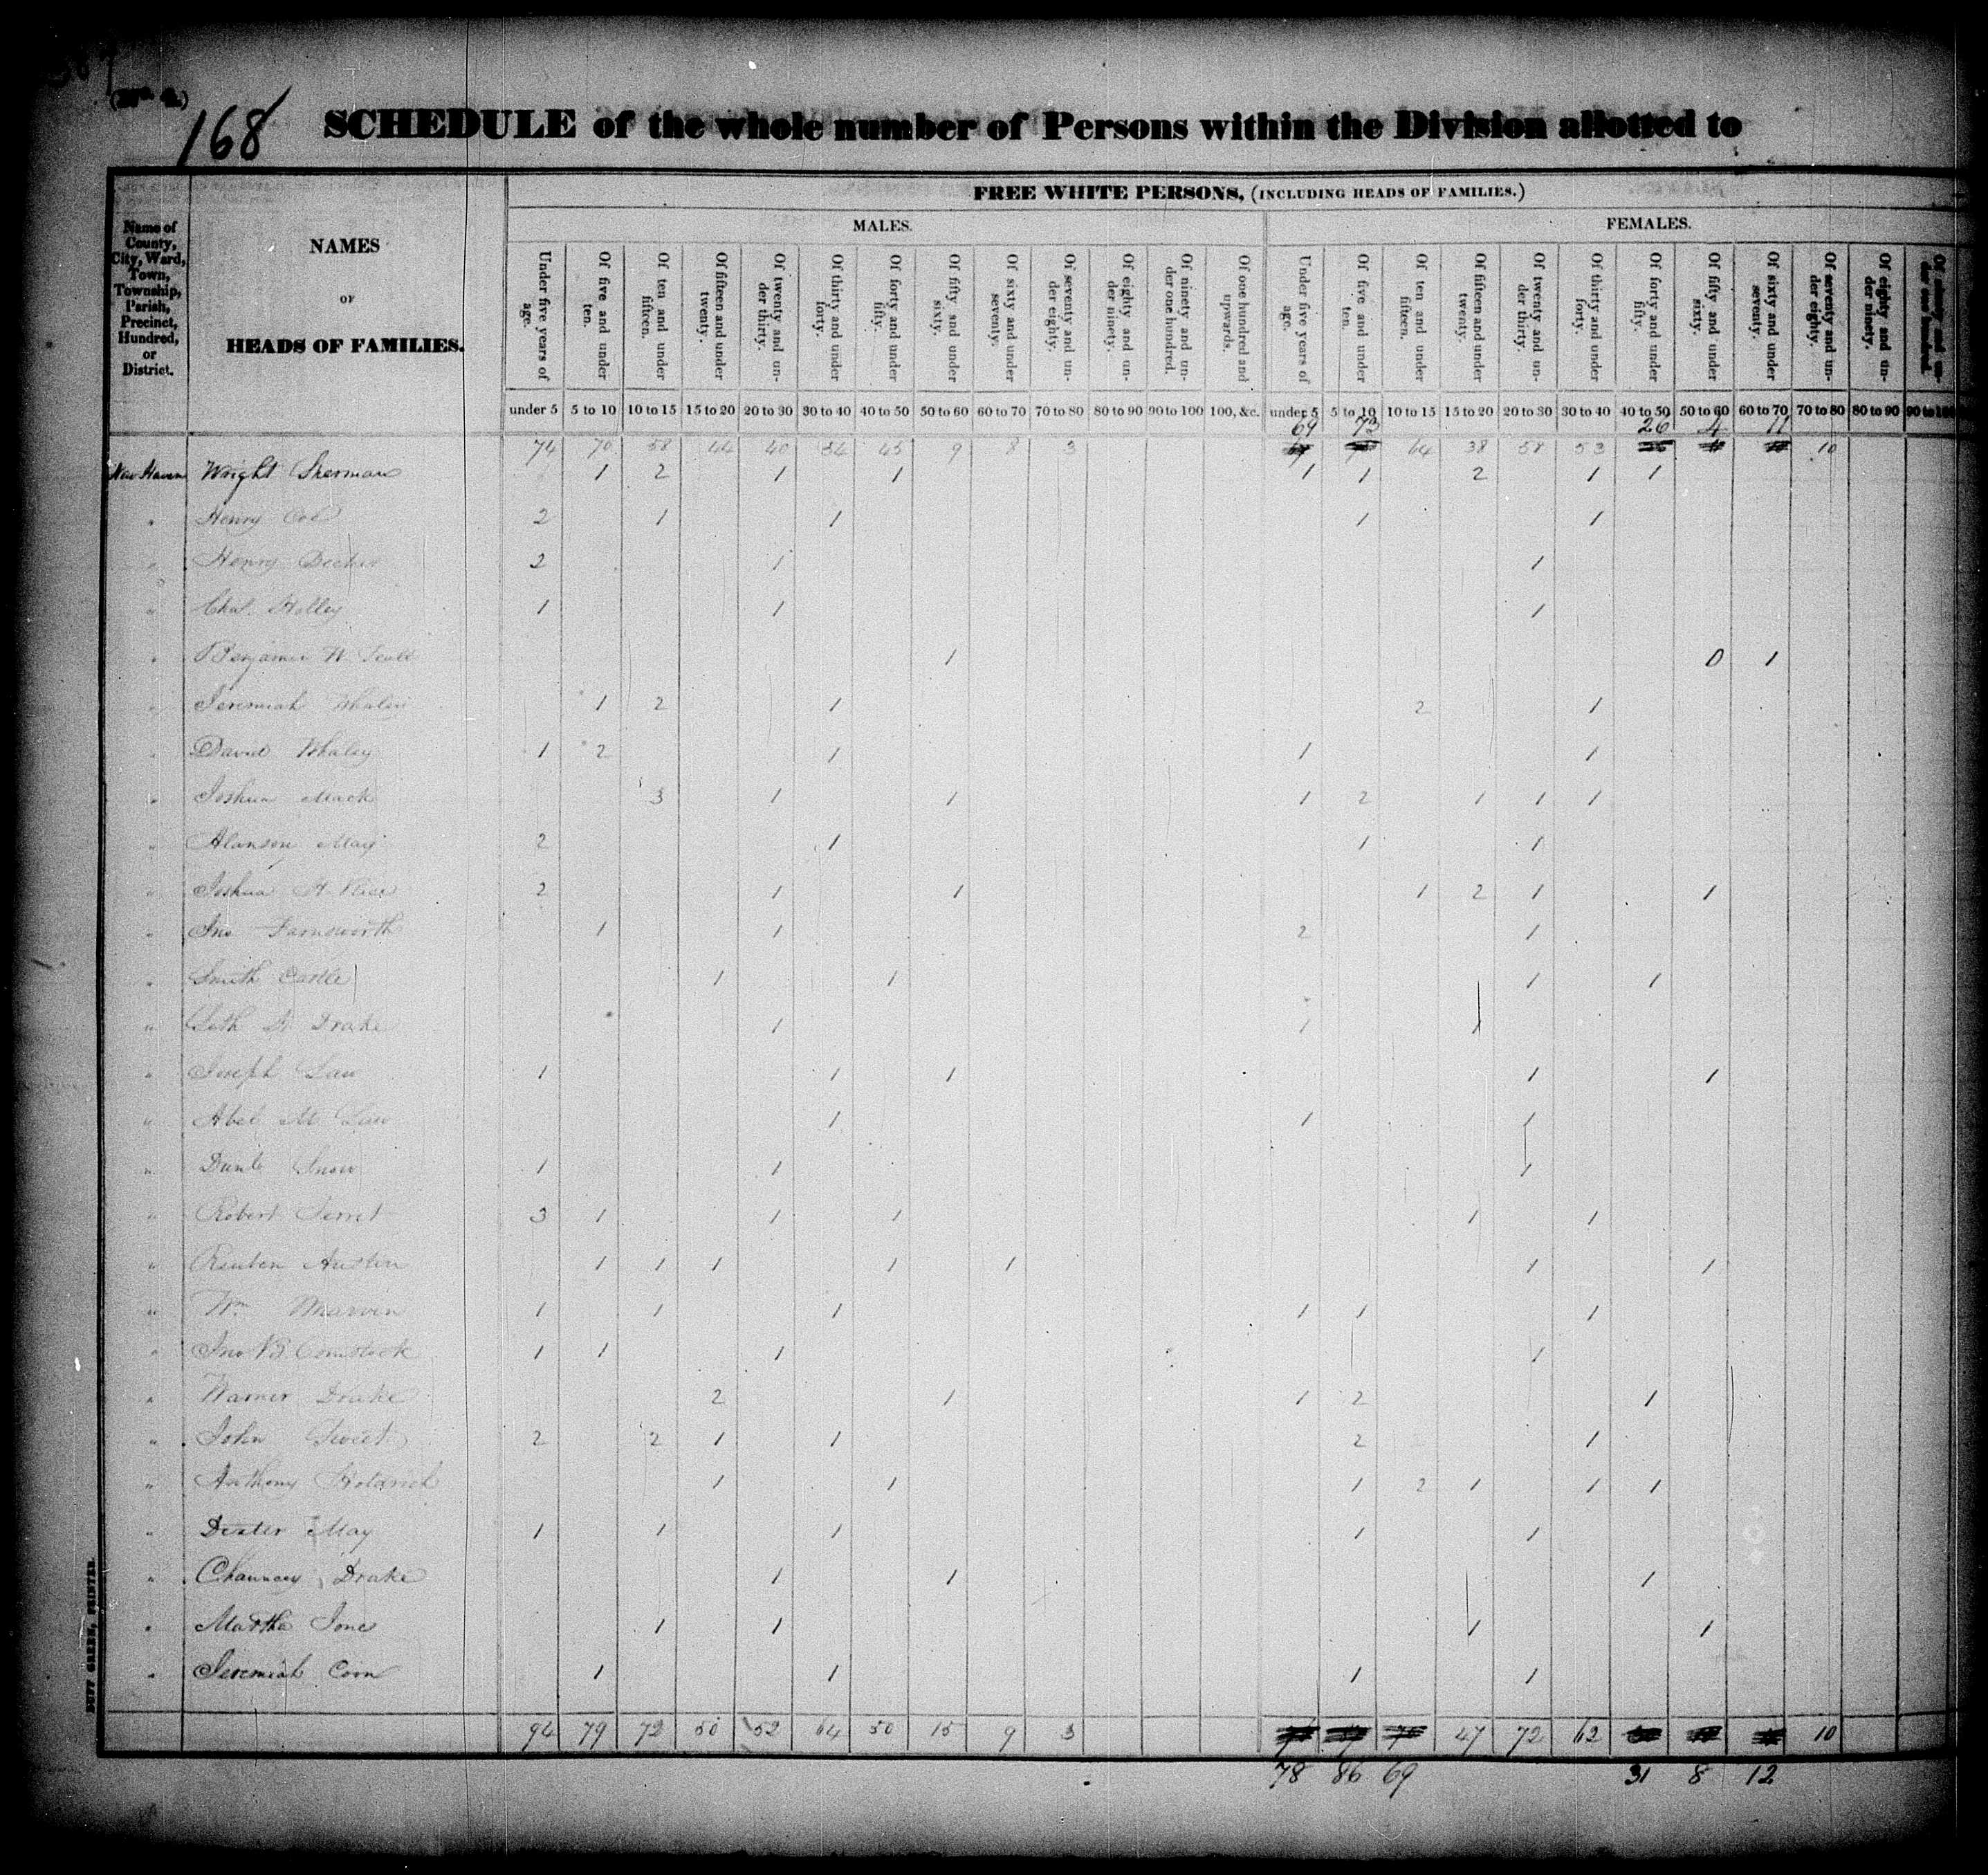 (No. 2.)
168
SCHEDULE of the whole number of Persons within the Division allotted to
FREE WHITE PERSONS, (INCLUDING HEADS OF FAMILIES.)
MALES. FEMALES.
Name of County, City, Ward, Town, Township, Parish, Precinct, Hundred, or District.
NAMES
OF
HEADS OF FAMILIES.
Under five years of age. Of five and under ten. Of ten and under fifteen. Of fifteen and under twenty. Of twenty and under thirty. Of thirty and under forty. Of forty and under fifty. Of fifty and under sixty. Of sixty and under seventy. Of seventy and under eighty. Of eighty and under ninety. Of ninety and under one hundred. Of one hundred and upwards. Under five years of age. Of five and under ten. Of ten and under fifteen. Of fifteen and under twenty. Of twenty and under thirty. Of thirty and under forty. Of forty and under fifty. Of fifty and under sixty. Of sixty and under seventy. Of seventy and under eighty. Of eighty and under ninety. Of ninety and under one hundred.
under 5 5 to 10 10 to 15 15 to 20 20 to 30 30 to 40 40 to 50 50 to 60 60 to 70 70 to 80 80 to 90 90 to 100 100, &c. under 5 5 to 10 10 to 15 15 to 20 20 to 30 30 to 40 40 to 50 50 to 60 60 to 70 70 to 80 80 to 90 90 to 100
69 73 26 4 11
74 70 58 44 40 54 45 9 8 3 64 38 58 53 10
New Haven Wright Sherman 1 2 1 1 1 1 2 1 1
" Henry 2 1 1 1 1
" Henry 2 1 1
" Chas. Holley 1 1 1
" Benjamin W Scott 1 0 1
" Jeremiah Whaley 1 2 1 2 1
" David Whaley 1 2 1 1 1
" Joshua Mack 3 1 1 1 2 1 1 1
" Alanson May 2 1 1 1
" Joshua H 2 1 1 1 2 1 1
" Jno Farnsworth 1 1 2 1
" Smith Castle 1 1 1 1
" Seth Drake 1 1 1
" Joseph Law 1 1 1 1 1
" Abel M Law 1 1 1
" Snow 1 1 1
" Robert 3 1 1 1 1 1
" Reuben Austin 1 1 1 1 1 1 1
" Wm Marvin 1 1 1 1 1 1
" Jno Comstock 1 1 1 1
" Warner Drake 2 1 1 2 1
" John Sweet 2 2 1 1 2 1
" Anthony 1 1 1 2 1 1 1
" Dexter May 1 1 1 1 1
" Chauncey Drake 1 1 1
" Martha Jone 1 1 1 1
" Jeremiah Corn 1 1 1 1
94 79 72 50 52 64 50 15 9 3 47 72 62 10
78 86 69 31 8 12
DUFF GREEN, PRINTER.